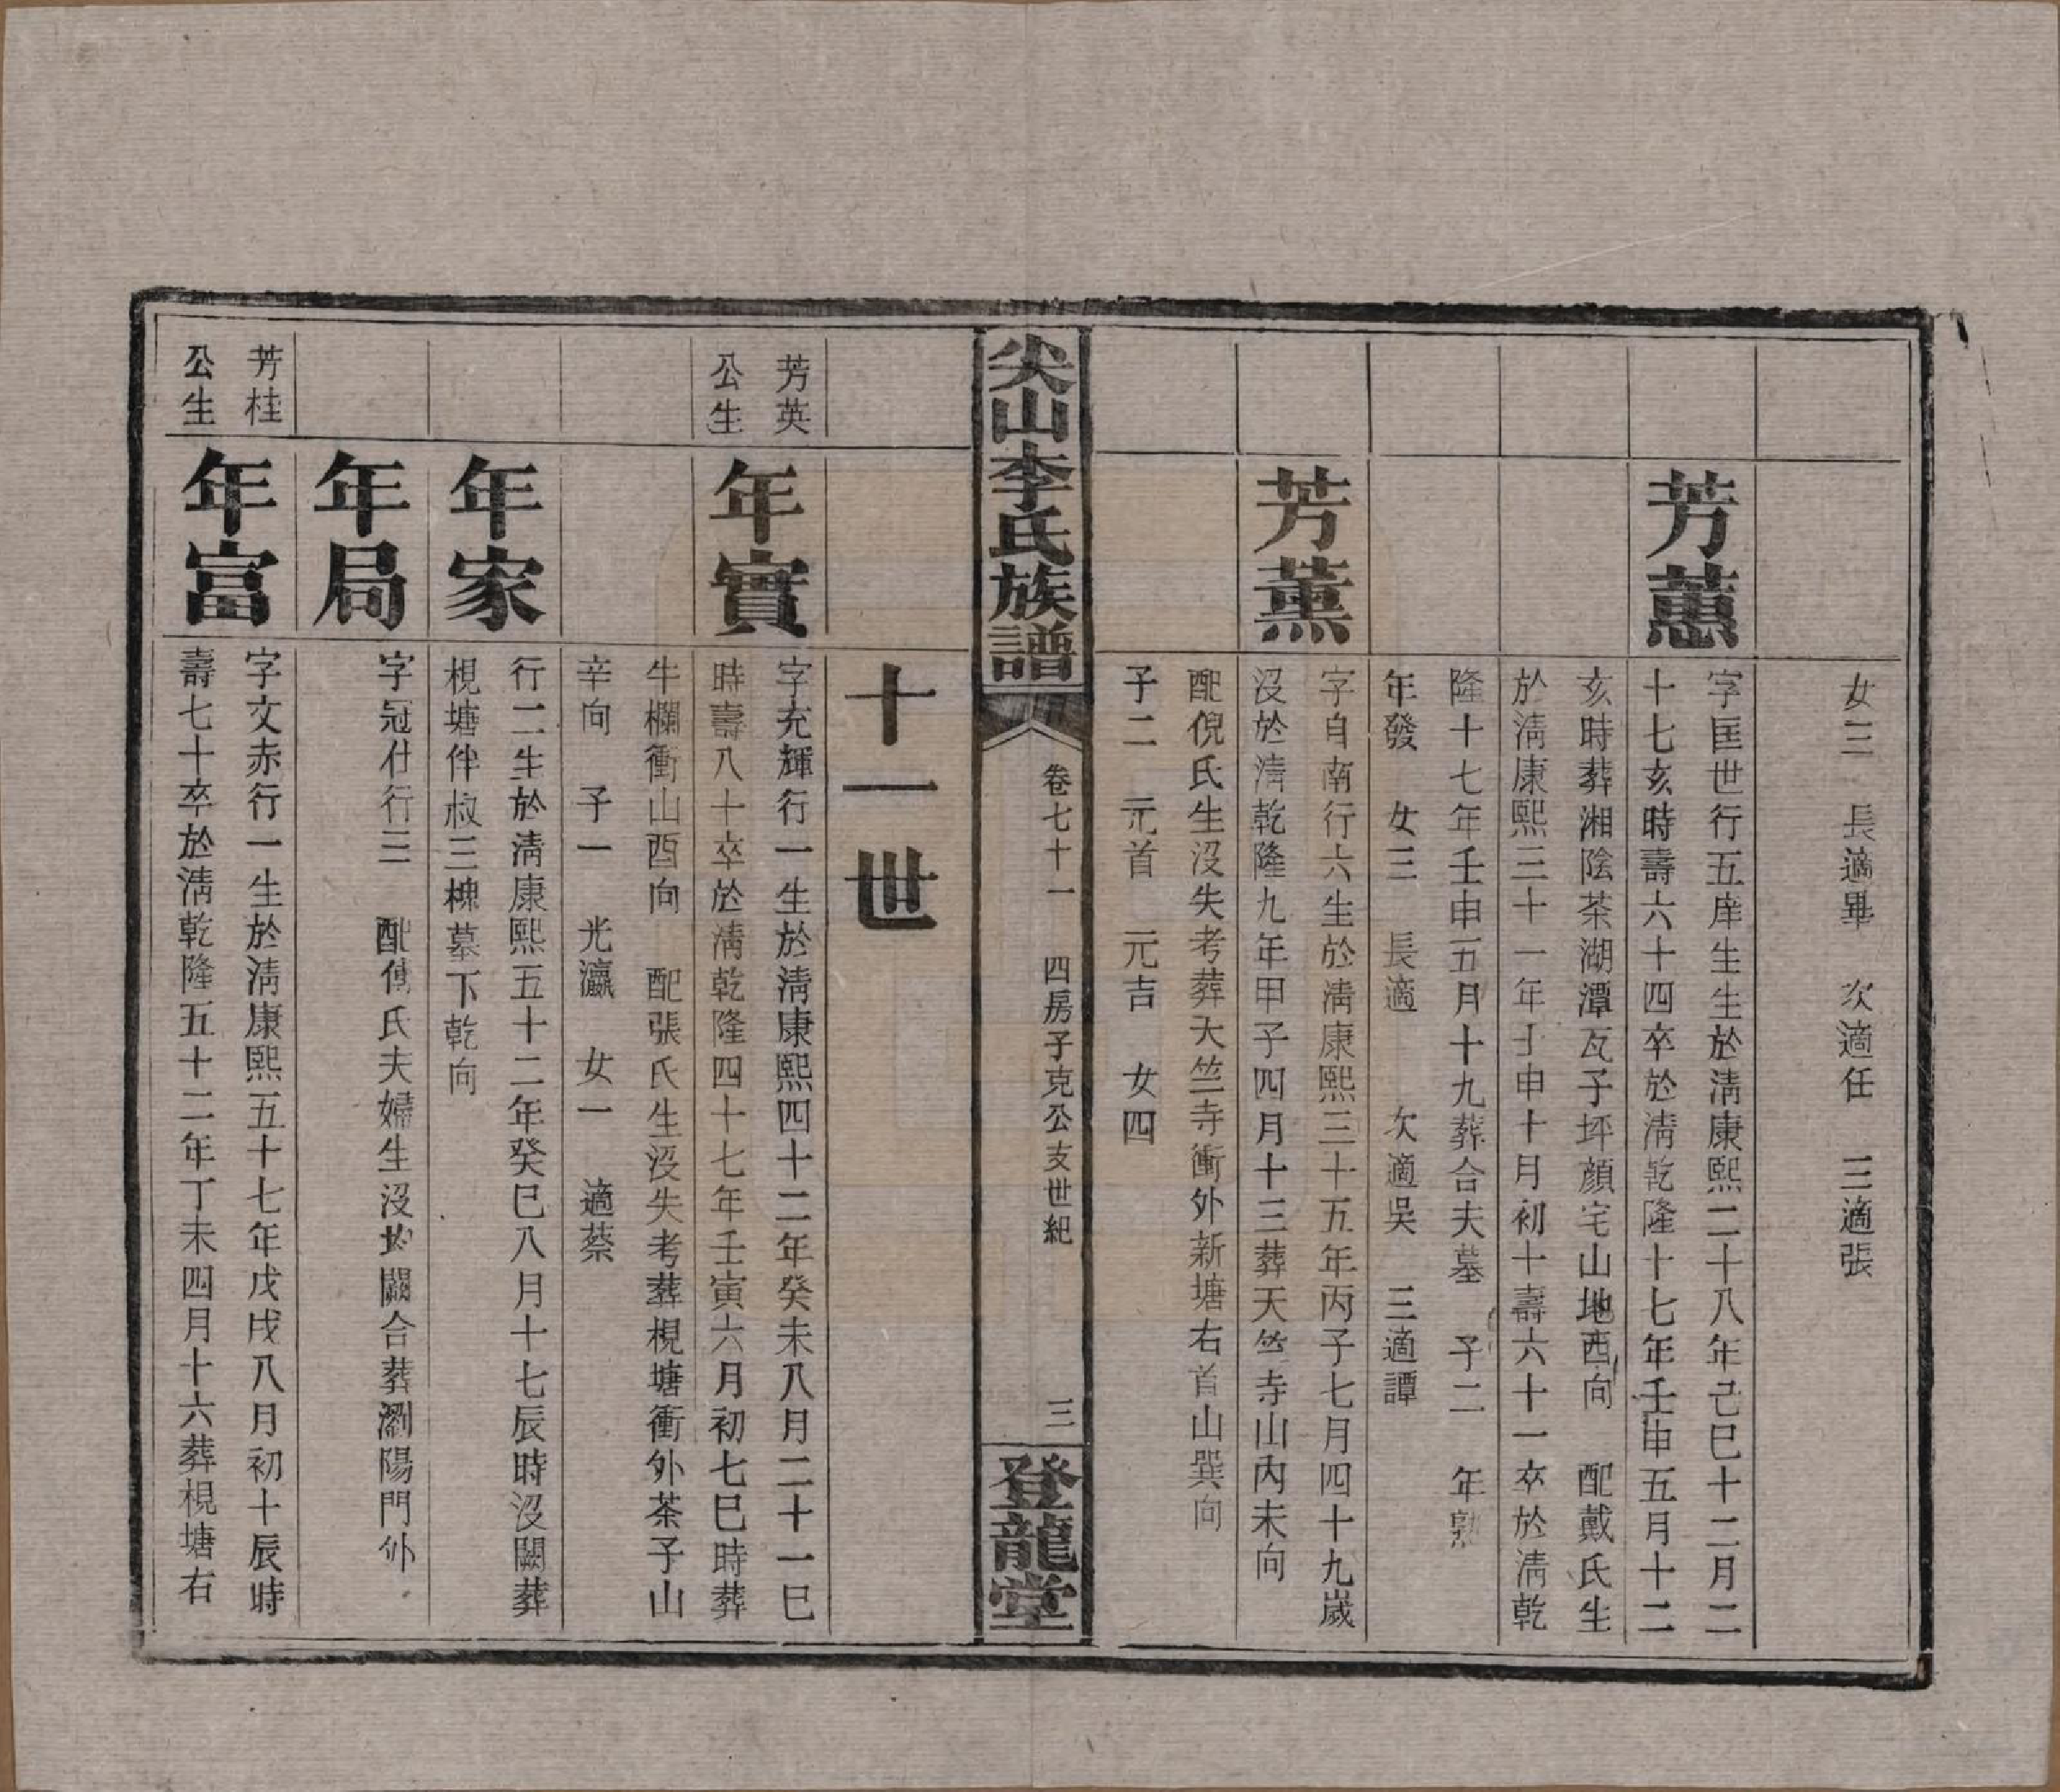 女三　長適畢　次適任　三適張
芳蕙
字匡世行五庠生生於淸康熙二十八年己巳十二月二
十七亥時壽六十四卒於淸乾隆十七年壬申五月十二
亥時葬湘陰茶湖潭瓦子坪顔宅山地酉向　配戴氏生
於淸康熙三十一年壬申十月初十壽六十一卒於淸乾
隆十七年壬申五月十九葬合夫墓　子二　年熟
年發　女三　長適　　次適吳　三適譚
芳薰
字自南行六生於淸康熙三十五年丙子七月四十九歲
沒於淸乾隆九年甲子四月十三葬天竺寺山內未向
配倪氏生沒失考葬天竺寺衝外新塘右首山巽向
子二　元首　元吉　女四
尖山李氏族譜
卷七十一　四房子克公支世紀　三
登龍堂
十一世
芳英
公生
年實
字充輝行一生於淸康熙四十二年癸未八月二十一巳
時壽八十卒於淸乾隆四十七年壬寅六月初七巳時葬
牛欄衝山酉向　配張氏生沒失考葬梘塘衝外茶子山
辛向　子一　光瀛　女一　適蔡
年家
行二生於淸康熙五十二年癸巳八月十七辰時沒闕葬
梘塘伴叔三棟墓下乾向
年局
字冠仕行三　配傅氏夫婦生沒均闕合葬瀏陽門外
芳桂
公生
年富
字文赤行一生於淸康熙五十七年戊戌八月初十辰時
壽七十卒於淸乾隆五十二年丁未四月十六葬梘塘右